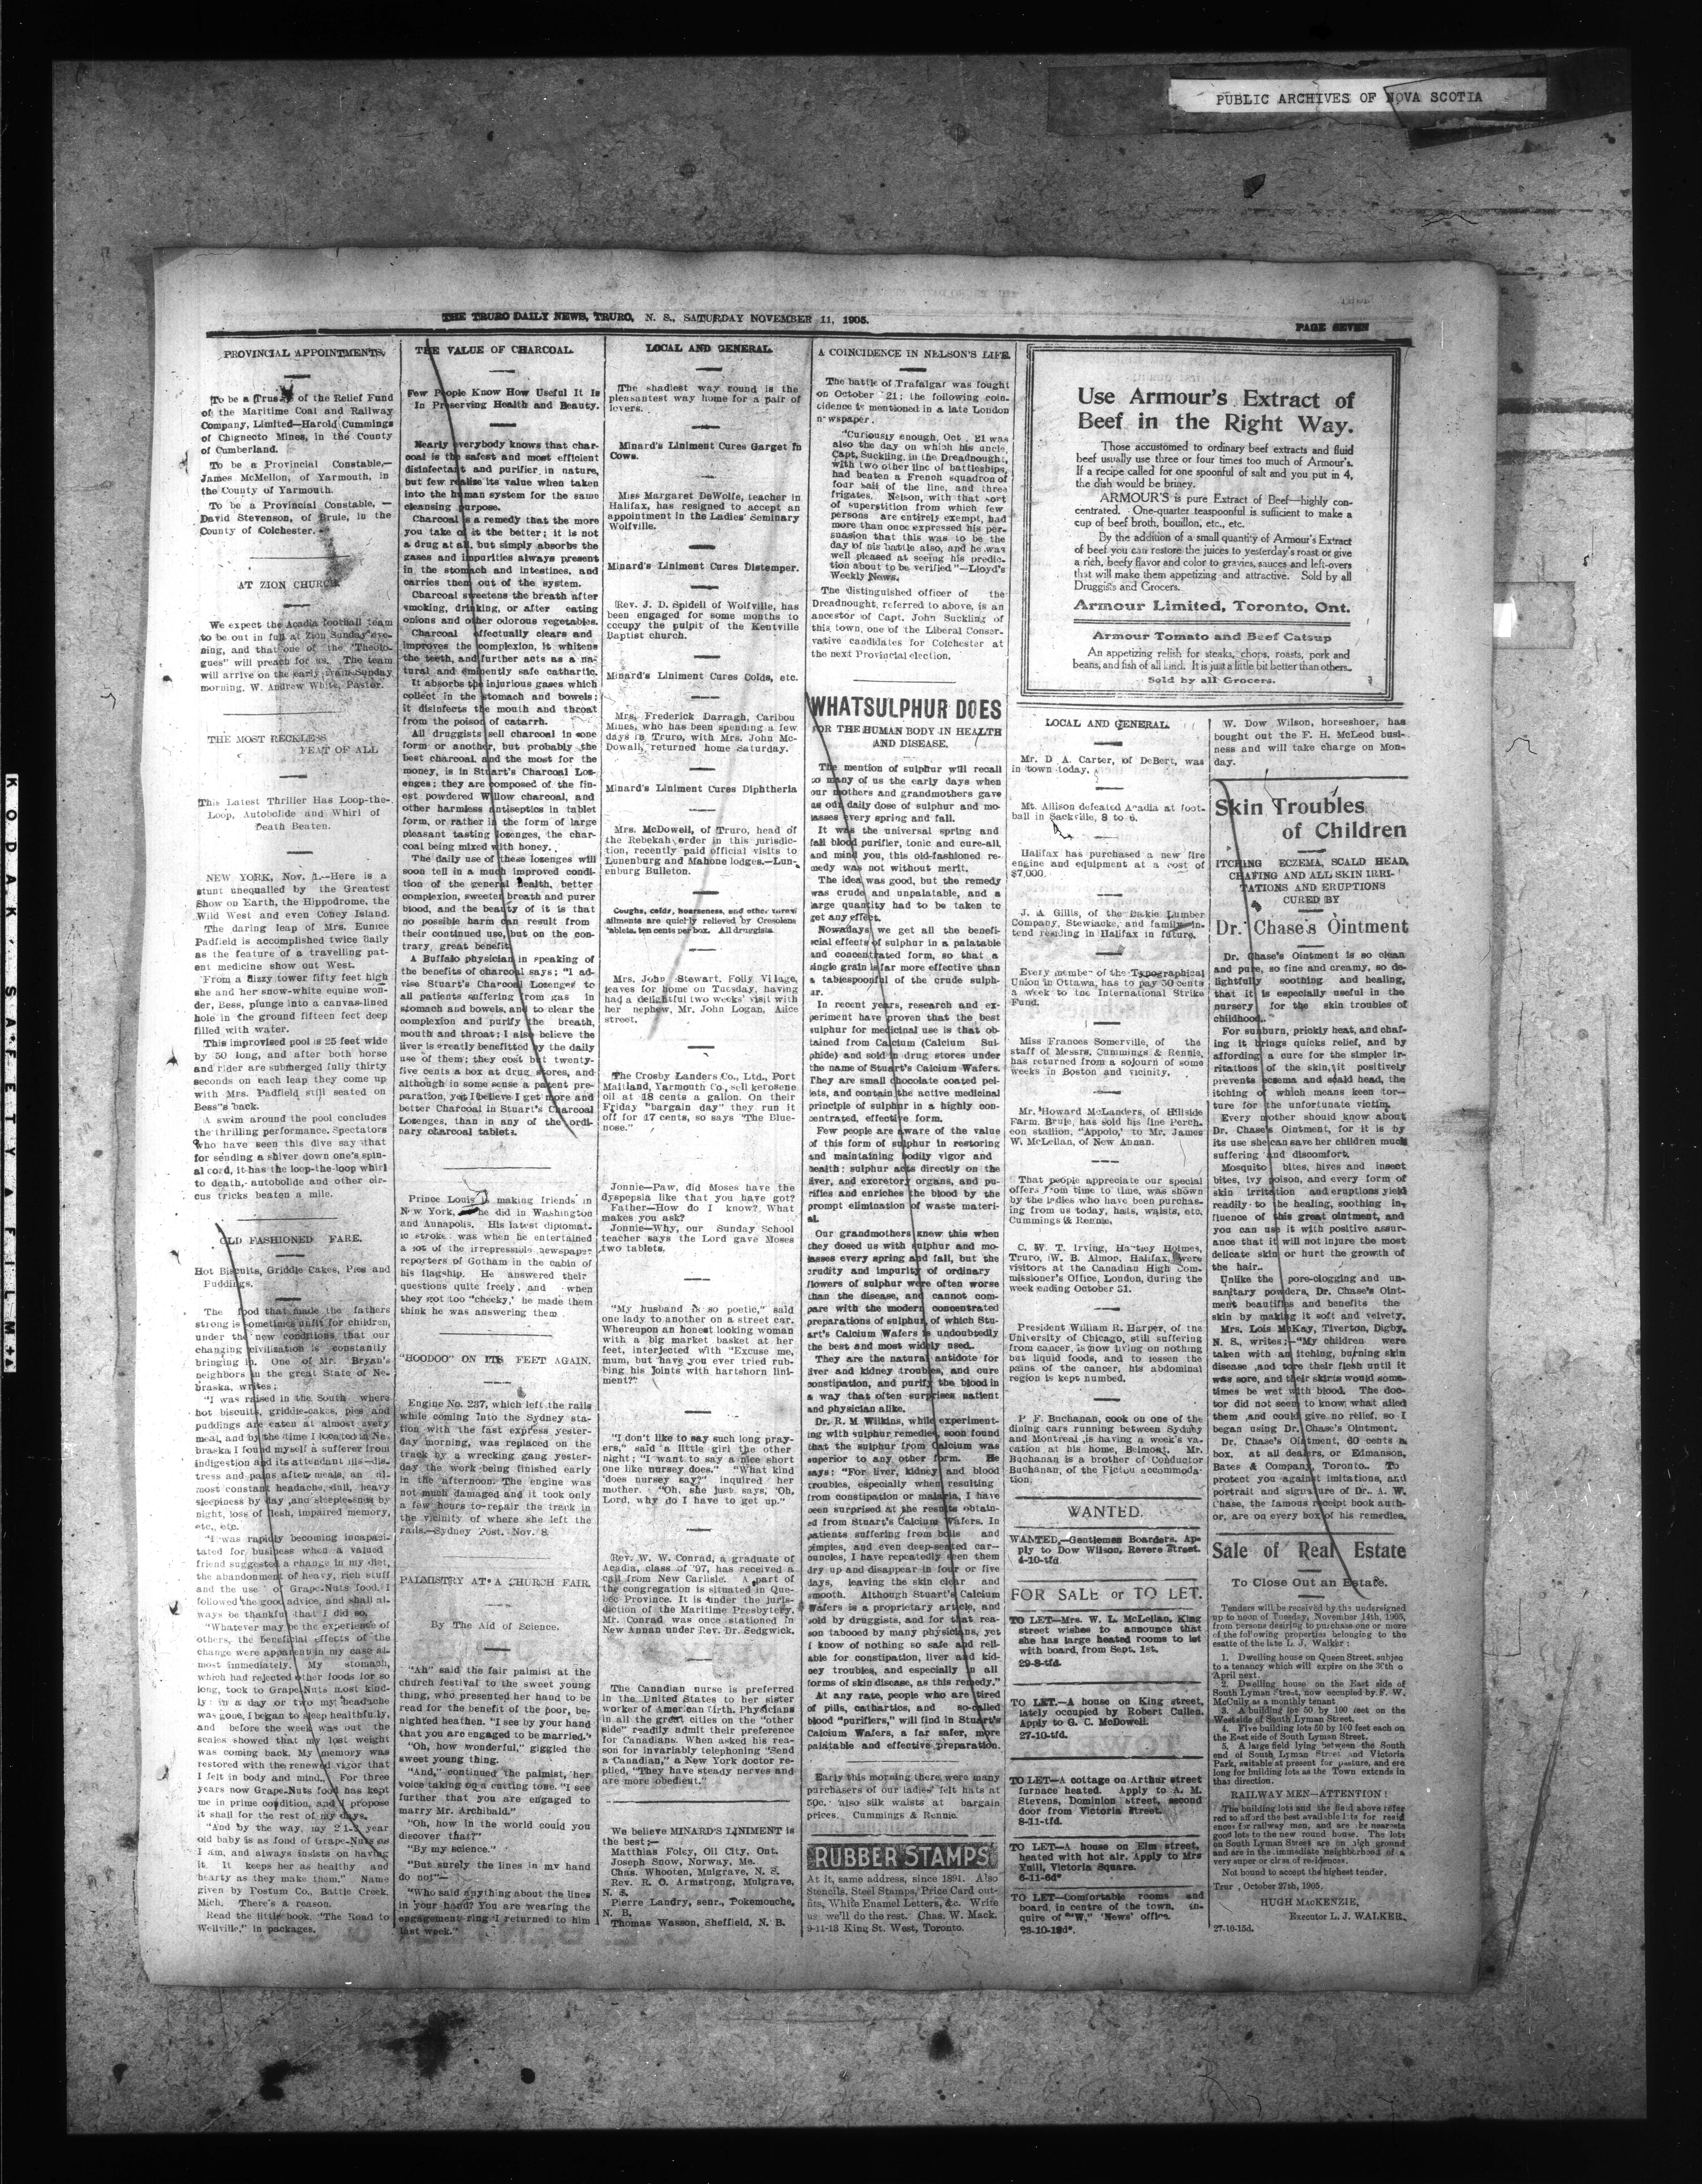 PUBLIC ARCHIVES OF NOVA SCOTIA
KODAK SAFETY FILM
THE TRURO DAILY NEWS, TRURO, N. S., SATURDAY NOVEMBER 11, 1905.
PAGE SEVEN
PROVINCIAL APPOINTMENTS.
To be a of the Relief Fund
of the Maritime Coal and Railway
Company, Limited—Harold Cummings
of Chignecto Mines, in the County
of Cumberland.
To be a Provincial Constable,—
James McMellon, of Yarmouth, in
the County of Yarmouth.
To be a Provincial Constable, —
David Stevenson, of Brule, in the
County of Colchester.
AT ZION CHURCH
We expect the Acadia football team
to be out in full at Zion Sunday eve-
ning, and that one of the "Theolo-
gues" will preach for us. The team
will arrive on the early train Sunday
morning. W. Andrew White, Pastor.
THE MOST RECKLESS
FEAT OF ALL
This Latest Thriller Has Loop-the-
Loop, Autobolide and Whirl of
Death Beaten.
NEW YORK, Nov. 1.—Here is a
stunt unequalled by the Greatest
Show on Earth, the Hippodrome, the
Wild West and even Coney Island.
The daring leap of Mrs. Eunice
Padfield is accomplished twice daily
as the feature of a travelling pat-
ent medicine show out West.
From a dizzy tower fifty feet high
she and her snow-white equine won-
der, Bess, plunge into a canvas-lined
hole in the ground fifteen feet deep
filled with water.
This improvised pool is 25 feet wide
by 50 long, and after both horse
and rider are submerged fully thirty
seconds on each leap they come up
with Mrs. Padfield still seated on
Bess"s back.
A swim around the pool concludes
the thrilling performance. Spectators
who have seen this dive say that
for sending a shiver down one's spin-
al cord, it has the loop-the-loop whirl
to death, autobolide and other cir-
cus tricks beaten a mile.
OLD FASHIONED FARE.
Hot Biscuits, Griddle Cakes, Pies and
Puddings.
The food that made the fathers
strong is sometimes unfit for children,
under the new conditions that our
changing civilization is constantly
bringing in. One of Mr. Bryan's
neighbors in the great State of Ne-
braska, writes:
"I was raised in the South where
hot biscuits, griddle-cakes, pies and
puddings are eaten at almost avery
meal, and by the time I located in Ne-
braska I found myself a sufferer from
indigestion and its attendant ills—dis-
tress and pains after meals, an al-
most constant headache, dull, heavy
sleepiness by day ,and sleeplessness by
night, loss of flesh, impaired memory,
etc., etc.
"I was rapidly becoming incapaci-
tated for business when a valued
friend suggested a change in my diet,
the abandonment of heavy, rich stuff
and the use of Grape-Nuts food. I
followed the good advice, and shall al-
ways be thankful that I did so.
"Whatever may be the experience of
others, the beneficial effects of the
change were apparent in my case al-
most immediately. My stomach,
which had rejected other foods for so
long, took to Grape-Nuts most kind-
ly: in a day or two my headache
was gone, I began to sleep healthfully,
and before the week was out the
scales showed that my lost weight
was coming back. My memory was
restored with the renewed vigor that
I felt in body and mind. For three
years now Grape-Nuts food has kept
me in prime condition, and I propose
it shall for the rest of my days.
"And by the way, my 2 1-2 year
old baby is as fond of Grape-Nuts as
I am, and always insists on having
it. It keeps her as healthy and
hearty as they make them." Name
given by Postum Co., Battle Creek,
Mich. There's a reason.
Read the little book, "The Road to
Wellville," in packages.
THE VALUE OF CHARCOAL.
Few People Know How Useful It Is
In Preserving Health and Beauty.
Nearly everybody knows that char-
coal is the safest and most efficient
disinfectant and purifier in nature,
but few realize its value when taken
into the human system for the same
cleansing purpose.
Charcoal is a remedy that the more
you take of it the better; it is not
a drug at all, but simply absorbs the
gases and impurities always present
in the stomach and intestines, and
carries them out of the system.
Charcoal sweetens the breath after
smoking, drinking, or after eating
onions and other odorous vegetables.
Charcoal effectually clears and
improves the complexion, it whitens
the teeth, and further acts as a na-
tural and eminently safe cathartic.
It absorbs the injurious gases which
collect in the stomach and bowels;
it disinfects the mouth and throat
from the poison of catarrh.
All druggists sell charcoal in one
form or another, but probably the
best charcoal, and the most for the
money, is in Stuart's Charcoal Loz-
enges; they are composed of the fin-
est powdered Willow charcoal, and
other harmless antiseptics in tablet
form, or rather in the form of large
pleasant tasting lozenges, the char-
coal being mixed with honey.
The daily use of these lozenges will
soon tell in a much improved condi-
tion of the general health, better
complexion, sweeter breath and purer
blood, and the beauty of it is that
no possible harm can result from
their continued use, but on the con-
trary, great benefit.
A Buffalo physician in speaking of
the benefits of charcoal says; "I ad-
vise Stuart's Charcoal Lozenges to
all patients suffering from gas in
stomach and bowels, and to clear the
complexion and purify the breath,
mouth and throat; I also believe the
liver is greatly benefitted by the daily
use of them; they cost but twenty-
five cents a box at drug stores, and
although in some sense a patent pre-
paration, yet I believe I get more and
better Charcoal in Stuart's Charcoal
Lozenges, than in any of the ordi-
nary charcoal tablets.
Prince Louis is making friends in
New York, he did in Washington
and Annapolis. His latest diplomat-
ic stroke was when he entertained
a lot of the irrepressible newspaper
reporters of Gotham in the cabin of
his flagship. He answered their
questions quite freely, and when
they got too "cheeky,' he made them
think he was answering them
"HOODOO" ON ITS FEET AGAIN.
Engine No. 237, which left the rails
while coming into the Sydney sta-
tion with the fast express yester-
day morning, was replaced on the
track by a wrecking gang yester-
day the work being finished early
in the afternoon. The engine was
not much damaged and it took only
a few hours to repair the track in
the vicinity of where she left the
rails.—Sydney Post, Nov. 8.
PALMISTRY AT A CHURCH FAIR.
By The Aid of Science.
"Ah" said the fair palmist at the
church festival to the sweet young
thing, who presented her hand to be
read for the benefit of the poor, be-
nighted heathen. "I see by your hand
that you are engaged to be married."
"Oh, how wonderful," giggled the
sweet young thing.
"And," continued the palmist, her
voice taking on a cutting tone, "I see
further that you are engaged to
marry Mr. Archibald."
"Oh, how in the world could you
discover that?"
"By my science."
"But surely the lines in my hand
do not"—
"Who said anything about the lines
in your hand? You are wearing the
engagement ring I returned to him
last week."
LOCAL AND GENERAL.
The shadiest way round is the
pleasantest way home for a pair of
lovers.
Minard's Liniment Cures Garget in
Cows.
Miss Margaret DeWolfe, teacher in
Halifax, has resigned to accept an
appointment in the Ladies' Seminary
Wolfville.
Minard's Liniment Cures Distemper.
Rev. J. D. Spidell of Wolfville, has
been engaged for some months to
occupy the pulpit of the Kentville
Baptist church.
Minard's Liniment Cures Colds, etc.
Mrs. Frederick Darragh, Caribou
Mines, who has been spending a few
days in Truro, with Mrs. John Mc-
Dowall, returned home Saturday.
Minard's Liniment Cures Diphtheria
Mrs. McDowell, of Truro, head of
the Rebekah order in this jurisdic-
tion, recently paid official visits to
Lunenburg and Mahone lodges.—Lun-
enburg Bulleton.
Coughs, colds, hoarseness, and other throat
ailments are quickly relieved by Cresolene
tablets, ten cents per box. All druggists
Mrs. John Stewart, Folly Village,
leaves for home on Tuesday, having
had a delightful two weeks' visit with
her nephew, Mr. John Logan, Alice
street.
The Crosby Landers Co., Ltd., Port
Maitland, Yarmouth Co., sell kerosene
oil at 18 cents a gallon. On their
Friday "bargain day" they run it
off for 17 cents, so says "The Blue-
nose."
Jonnie—Paw, did Moses have the
dyspepsia like that you have got?
Father—How do I know? What
makes you ask?
Jonnie—Why, our Sunday School
teacher says the Lord gave Moses
two tablets.
"My husband is so poetic," said
one lady to another on a street car.
Whereupon an honest looking woman
with a big market basket at her
feet, interjected with "Excuse me,
mum, but have you ever tried rub-
bing his joints with hartshorn lini-
ment?"
"I don't like to say such long pray-
ers," said a little girl the other
night; "I want to say a nice short
one like nursey does." "What kind
does nursey say?" inquired her
mother. "Oh, she just says, 'Oh,
Lord, why do I have to get up."
Rev. W. W. Conrad, a graduate of
Acadia, class of '97, has received a
call from New Carlisle. A part of
the congregation is situated in Que-
bec Province. It is under the juris-
diction of the Maritime Presbytery.
Mr. Conrad was once stationed in
New Annan under Rev. Dr. Sedgwick.
The Canadian nurse is preferred
in the United States to her sister
worker of American birth. Physicians
in all the great cities on the "other
side" readily admit their preference
for Canadians. When asked his rea-
son for invariably telephoning "Send
a Canadian," a New York doctor re-
plied, "They have steady nerves and
are more obedient."
We believe MINARD'S LINIMENT is
the best;—
Matthias Foley, Oil City, Ont.
Joseph Snow, Norway, Me.
Chas. Whooten, Mulgrave, N. S.
Rev. R. O. Armstrong, Mulgrave,
N. S.
Pierre Landry, senr., Pokemouche,
N. B.
Thomas Wasson, Sheffield, N. B.
A COINCIDENCE IN NELSON'S LIFE.
The battle of Trafalgar was fought
on October 21; the following coin-
cidence is mentioned in a late London
newspaper.
"Curiously enough, Oct. 21 was
also the day on which his uncle,
Capt. Suckling, in the Dreadnought,
with two other line of battleships,
had beaten a French squadron of
four sail of the line, and three
frigates. Nelson, with that sort
of superstition from which few
persons are entirely exempt, had
more than once expressed his per-
suasion that this was to be the
day of his battle also, and he was
well pleased at seeing his predic-
tion about to be verified"—Lloyd's
Weekly News.
The distinguished officer of the
Dreadnought, referred to above, is an
ancestor of Capt. John Suckling of
this town, one of the Liberal Conser-
vative candidates for Colchester at
the next Provincial election.
WHAT SULPHUR DOES
FOR THE HUMAN BODY IN HEALTH
AND DISEASE.
The mention of sulphur will recall
to many of us the early days when
our mothers and grandmothers gave
us our daily dose of sulphur and mo-
lasses every spring and fall.
It was the universal spring and
fall blood purifier, tonic and cure-all,
and mind you, this old-fashioned re-
medy was not without merit.
The idea was good, but the remedy
was crude and unpalatable, and a
large quantity had to be taken to
get any effect.
Nowadays we get all the benefi-
cial effects of sulphur in a palatable
and concentrated form, so that a
single grain is far more effective than
a tablespoonful of the crude sulph-
ur.
In recent years, research and ex-
periment have proven that the best
sulphur for medicinal use is that ob-
tained from Calcium (Calcium Sul-
phide) and sold in drug stores under
the name of Stuart's Calcium Wafers.
They are small chocolate coated pel-
lets, and contain the active medicinal
principle of sulphur in a highly con-
centrated, effective form.
Few people are aware of the value
of this form of sulphur in restoring
and maintaining bodily vigor and
health: sulphur acts directly on the
liver, and excretory organs, and pu-
rifies and enriches the blood by the
prompt elimination of waste materi-
al.
Our grandmothers knew this when
they dosed us with sulphur and mo-
lasses every spring and fall, but the
crudity and impurity of ordinary
flowers of sulphur were often worse
than the disease, and cannot com-
pare with the modern concentrated
preparations of sulphur, of which Stu-
art's Calcium Wafers is undoubtedly
the best and most widely used.
They are the natural antidote for
liver and kidney troubles, and cure
constipation, and purify the blood in
a way that often surprises patient
and physician alike.
Dr. R. M Wilkins, while experiment-
ing with sulphur remedies, soon found
that the sulphur from Calcium was
superior to any other form. He
says: "For liver, kidney and blood
troubles, especially when resulting
from constipation or malaria, I have
been surprised at the results obtain-
ed from Stuart's Calcium Wafers. In
patients suffering from boils and
pimples, and even deep-seated car-
buncles, I have repeatedly seen them
dry up and disappear in four or five
days, leaving the skin clear and
smooth. Although Stuart's Calcium
Wafers is a proprietary article, and
sold by druggists, and for that rea-
son tabooed by many physicians, yet
I know of nothing so safe and reli-
able for constipation, liver and kid-
ney troubles, and especially in all
forms of skin disease, as this remedy."
At any rate, people who are tired
of pills, cathartics, and so-called
blood "purifiers," will find in Stuart's
Calcium Wafers, a far safer, more
palatable and effective preparation.
Early this morning there were many
purchasers of our ladies' felt hats at
50c. also silk waists at bargain
prices. Cummings & Rennie.
RUBBER STAMPS
At it, same address, since 1891. Also
Stencils, Steel Stamps, Price Card out-
fits, White Enamel Letters, &c. Write
us we'll do the rest. Chas. W. Mack.
9-11-13 King St. West, Toronto.
Use Armour's Extract of
Beef in the Right Way.
Those accustomed to ordinary beef extracts and fluid
beef usually use three or four times too much of Armour's.
If a recipe called for one spoonful of salt and you put in 4,
the dish would be briney.
ARMOUR'S is pure Extract of Beef—highly con-
centrated. One-quarter teaspoonful is sufficient to make a
cup of beef broth, bouillon, etc., etc.
By the addition of a small quantity of Armour's Extract
of beef you can restore the juices to yesterday's roast or give
a rich, beefy flavor and color to gravies, sauces and left-overs
that will make them appetizing and attractive. Sold by all
Druggists and Grocers.
Armour Limited, Toronto, Ont.
Armour Tomato and Beef Catsup
An appetizing relish for steaks, chops, roasts, pork and
beans, and fish of all kind. It is just a little bit better than others.
Sold by all Grocers.
LOCAL AND GENERAL.
Mr. D A. Carter, of DeBert, was
in town today.
Mt. Allison defeated Acadia at foot-
ball in Sackville, 8 to 6.
Halifax has purchased a new fire
engine and equipment at a cost of
$7,000.
J. A. Gillis, of the Dakie Lumber
Company, Stewiacke, and family in-
tend residing in Halifax in future.
Every member of the Typographical
Union in Ottawa, has to pay 50 cents
a week to the International Strike
Fund.
Miss Frances Somerville, of the
staff of Messrs. Cummings & Rennie,
has returned from a sojourn of some
weeks in Boston and vicinity.
Mr. Howard McLanders, of Hillside
Farm, Brule, has sold his fine Perch-
eon stallion, "Appolo,' to Mr. James
W. McLellan, of New Annan.
That people appreciate our special
offers from time to time, was shown
by the ladies who have been purchas-
ing from us today, hats, waists, etc.
Cummings & Rennie.
C. W. T. Irving, Hartley Holmes,
Truro, W. B. Almon, Halifax, were
visitors at the Canadian High Com-
missioner's Office, London, during the
week ending October 31.
President William R. Harper, of the
University of Chicago, still suffering
from cancer, is now living on nothing
but liquid foods, and to lessen the
pains of the cancer, his abdominal
region is kept numbed.
P F. Buchanan, cook on one of the
dining cars running between Sydney
and Montreal ,is having a week's va-
cation at his home, Belmont. Mr.
Buchanan is a brother of Conductor
Buchanan, of the Pictou accommoda-
tion.
WANTED.
WANTED.—Gentlemen Boarders. Ap-
ply to Dow Wilson, Revere Street.
4-10-tfd.
FOR SALE or TO LET.
TO LET—Mrs. W. L. McLellan, King
street wishes to announce that
she has large heated rooms to let
with board, from Sept. 1st.
29-8-tfd.
TO LET.—A house on King street,
lately occupied by Robert Cullen.
Apply to G. C. McDowell.
27-10-tfd.
TO LET—A cottage on Arthur street
furnace heated. Apply to A. M.
Stevens, Dominion street, second
door from Victoria Street.
8-11-tfd.
TO LET—A house on Elm street,
heated with hot air. Apply to Mrs
Yuill, Victoria Square.
6-11-6d*
TO LET—Comfortable rooms and
board, in centre of the town. in-
quire of "W," 'News' office.
W. Dow Wilson, horseshoer, has
bought out the F. H. McLeod busi-
ness and will take charge on Mon-
day.
Skin Troubles
of Children
ITCHING ECZEMA, SCALD HEAD,
CHAFING AND ALL SKIN IRRI-
TATIONS AND ERUPTIONS
CURED BY
Dr. Chase's Ointment
Dr. Chase's Ointment is so clean
and pure, so fine and creamy, so de-
lightfully soothing and healing,
that it is especially useful in the
nursery for the skin troubles of
childhood.
For sunburn, prickly heat, and chaf-
ing it brings quicks relief, and by
affording a cure for the simpler ir-
ritations of the skin, it positively
prevents eczema and scald head, the
itching of which means keen tor-
ture for the unfortunate victim.
Every mother should know about
Dr. Chase's Ointment, for it is by
its use she can save her children much
suffering and discomfort.
Mosquito bites, hives and insect
bites, ivy poison, and every form of
skin irritation and eruptions yield
readily to the healing, soothing in-
fluence of this great ointment, and
you can use it with positive assur-
ance that it will not injure the most
delicate skin or hurt the growth of
the hair.
Unlike the pore-clogging and un-
sanitary powders, Dr. Chase's Oint-
ment beautifies and benefits the
skin by making it soft and velvety.
Mrs. Lois McKay, Tiverton, Digby,
N. S., writes:—"My children were
taken with an itching, burning skin
disease ,and tore their flesh until it
was sore, and their skirts would some-
times be wet with blood. The doc-
tor did not seem to know what ailed
them ,and could give no relief, so I
began using Dr. Chase's Ointment.
Dr. Chase's Ointment, 60 cents a
box, at all dealers, or Edmanson,
Bates & Company, Toronto. To
protect you against imitations, and
portrait and signature of Dr. A. W.
Chase, the famous receipt book auth-
or, are on every box of his remedies.
Sale of Real Estate
To Close Out an Estate.
Tenders will be received by the undersigned
up to noon of Tuesday, November 14th, 1905,
from persons desiring to purchase one or more
of the following properties belonging to the
esatte of the late L. J. Walker:
1. Dwelling house on Queen Street, subjec
to a tenancy which will expire on the 30th o
April next.
2. Dwelling house on the East side of
South Lyman Street, now occupied by F. W.
McCully as a monthly tenant
3. A building lot 50 by 100 feet on the
West side of South Lyman Street.
4. Five building lots 50 by 100 feet each on
the East side of South Lyman Street.
5. A large field lying between the South
end of South Lyman Street and Victoria
Park, suitable at present for pasture, and ere
long for building lots as the Town extends in
that direction.
RAILWAY MEN—ATTENTION!
The building lots and the field above refer
red to afford the best available lots for resid
ences for railway men, and are the nearests
good lots to the new round house. The lots
on South Lyman Street are on high ground
and are in the immediate neighborhood of a
very super or class of residences.
Not bound to accept the highest tender.
Trur , October 27th, 1905.
HUGH MacKENZIE,
Executor L. J. WALKER.
27-10-15d.